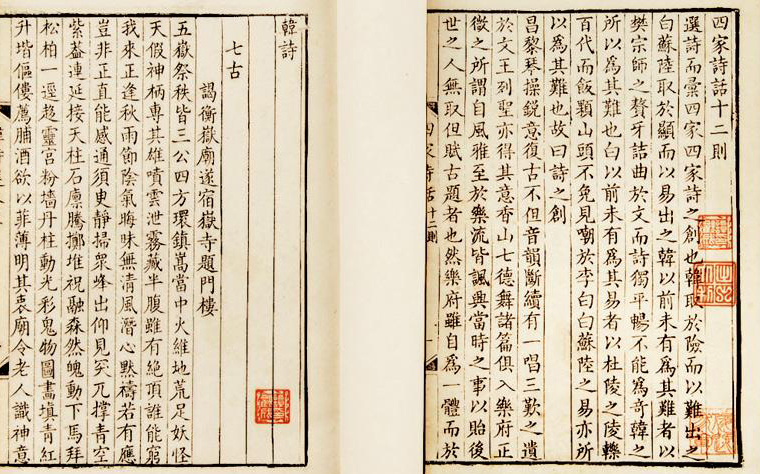 四家詩話十二則
選詩而彚四家四家詩之創也韓取於險而以難出之
白蘇陸取於顯而以易出之韓以前未有爲其難者以
樊宗師之聱牙詰曲於文而詩獨平暢不能爲奇韓之
所以爲其難也白以前未有爲其易者以杜陵之陵轢
百代而飯顆山頭不免見嘲於李白白蘇陸之易亦所
以爲其難也故曰詩之創
昌黎琴操銳意復古不但音韻斷續有一唱三歎之遺
於文王列聖亦得其意香山七德舞諸篇俱入樂府正
微之所謂自風雅至於樂流皆諷興當時之事以貽後
世之人無取但賦古題者也然樂府雖自爲一體而於
四家詩話十二則
韓詩
七古
謁衡嶽廟遂宿嶽寺題門樓
五嶽祭秩皆三公四方環鎮嵩當中火維地荒足妖怪
天假神柄專其雄噴雲泄霧藏半腹雖有絕頂誰能窮
我來正逢秋雨節陰氣晦昧無清風潛心默禱若有應
豈非正直能感通須臾靜掃衆峰出仰見突兀撐青空
紫葢連延接天柱石廩騰擲堆祝融森然魄動下馬拜
松柏一逕趨靈宮粉墻丹柱動光彩鬼物圖畫塡青紅
升堦傴僂薦脯酒欲以菲薄明其衷廟令老人識神意